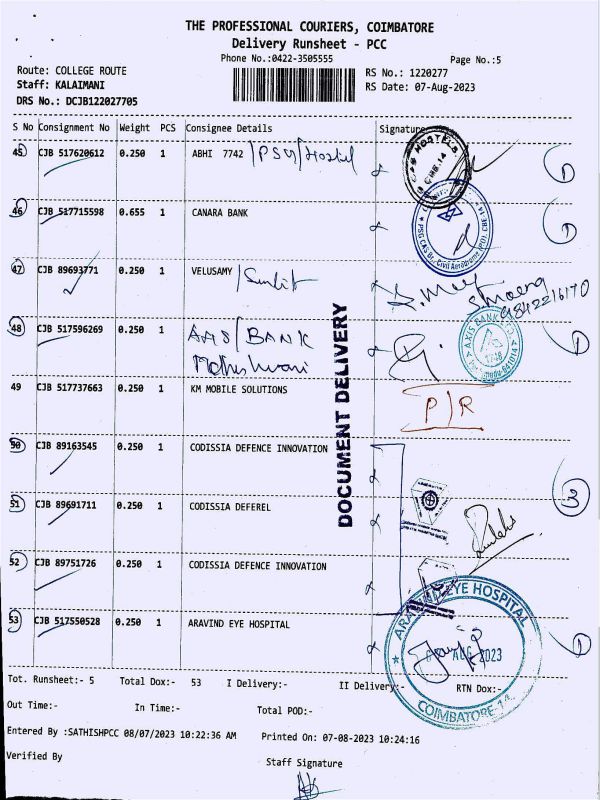 THE PROFESSIONAL COURIERS, COIMBATORE
Delivery Runsheet - PCC
Phone No.:0422-3505555
Page No.:5
Route: COLLEGE ROUTE
RS No.: 1220277
Staff: KALAIMANI
RS Date: 07-Aug-2023
DRS No.: DCJB122027705
S No Consignment No Weight PCS Consignee Details Signature
45 CJB 517620612 0.250 1 ABHI 7742 / PSG / Hostel
46 CJB 517715598 0.655 1 CANARA BANK
47 CJB 89693771 0.250 1 VELUSAMY
9842216170
48 CJB 517596269 0.250 1 BANK
AXIS BANK
49 CJB 517737663 0.250 1 KM MOBILE SOLUTIONS P/R
50 CJB 89163545 0.250 1 CODISSIA DEFENCE INNOVATION
3
51 CJB 89691711 0.250 1 CODISSIA DEFEREL
52 CJB 89751726 0.250 1 CODISSIA DEFENCE INNOVATION
53 CJB 517550528 0.250 1 ARAVIND EYE HOSPITAL
DOCUMENT DELIVERY
ARAVIND EYE HOSPITAL
AUG 2023
COIMBATORE-14
Tot. Runsheet:- 5 Total Dox:- 53 I Delivery:- II Delivery:- RTN Dox:-
Out Time:- In Time:- Total POD:-
Entered By :SATHISHPCC 08/07/2023 10:22:36 AM Printed On: 07-08-2023 10:24:16
Verified By Staff Signature